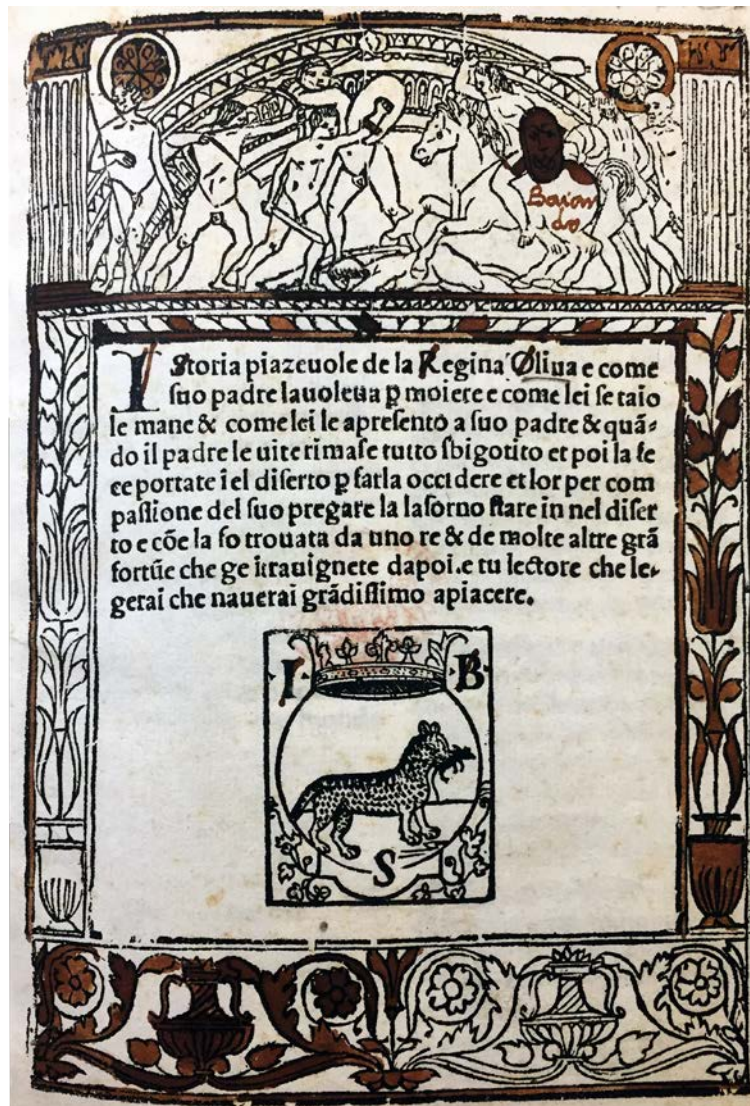 Boion
do
IStoria piazeuole de la Regina Oliua e come
suo padre lauoleua p̱ moiere e come lei se taio
le mane & come lei le apresento a suo padre & quā-
do il padre le uite rimase tutto sbigotito et poi la fe
ce portate i el diserto p̱ farla occidere et lor per com
passione del suo pregare la lasorno stare in nel diser
to e cōe la fo trouata da uno re & de molte altre grā
fortūe che ge itrauignete dapoi .e tu lectore che le-
gerai che nauerai grādissimo apiacere.
I B
S